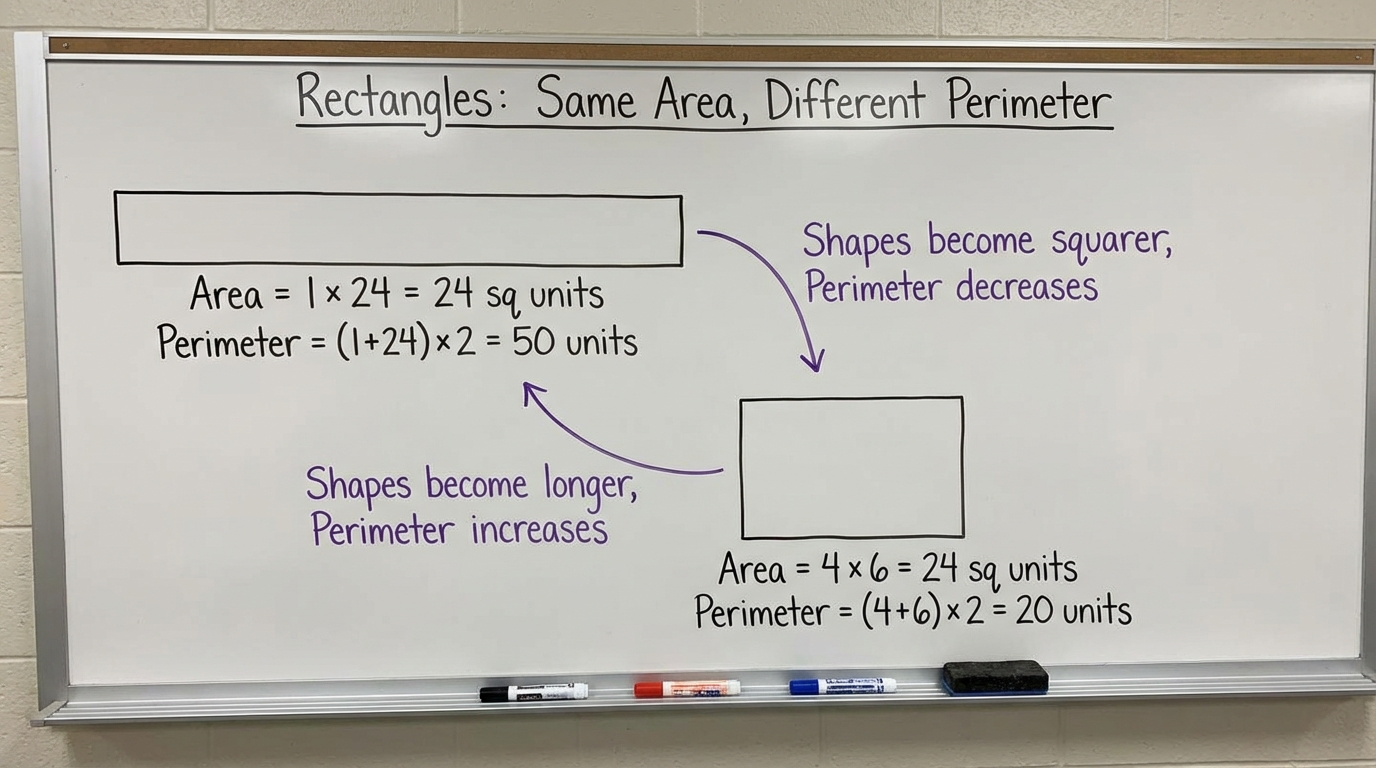 Rectangles: Same Area, Different Perimeter
Area = 1 × 24 = 24 sq units
Perimeter = (1+24) × 2 = 50 units
Shapes become squarer,
Perimeter decreases
Shapes become longer,
Perimeter increases
Area = 4 × 6 = 24 sq units
Perimeter = (4+6) × 2 = 20 units